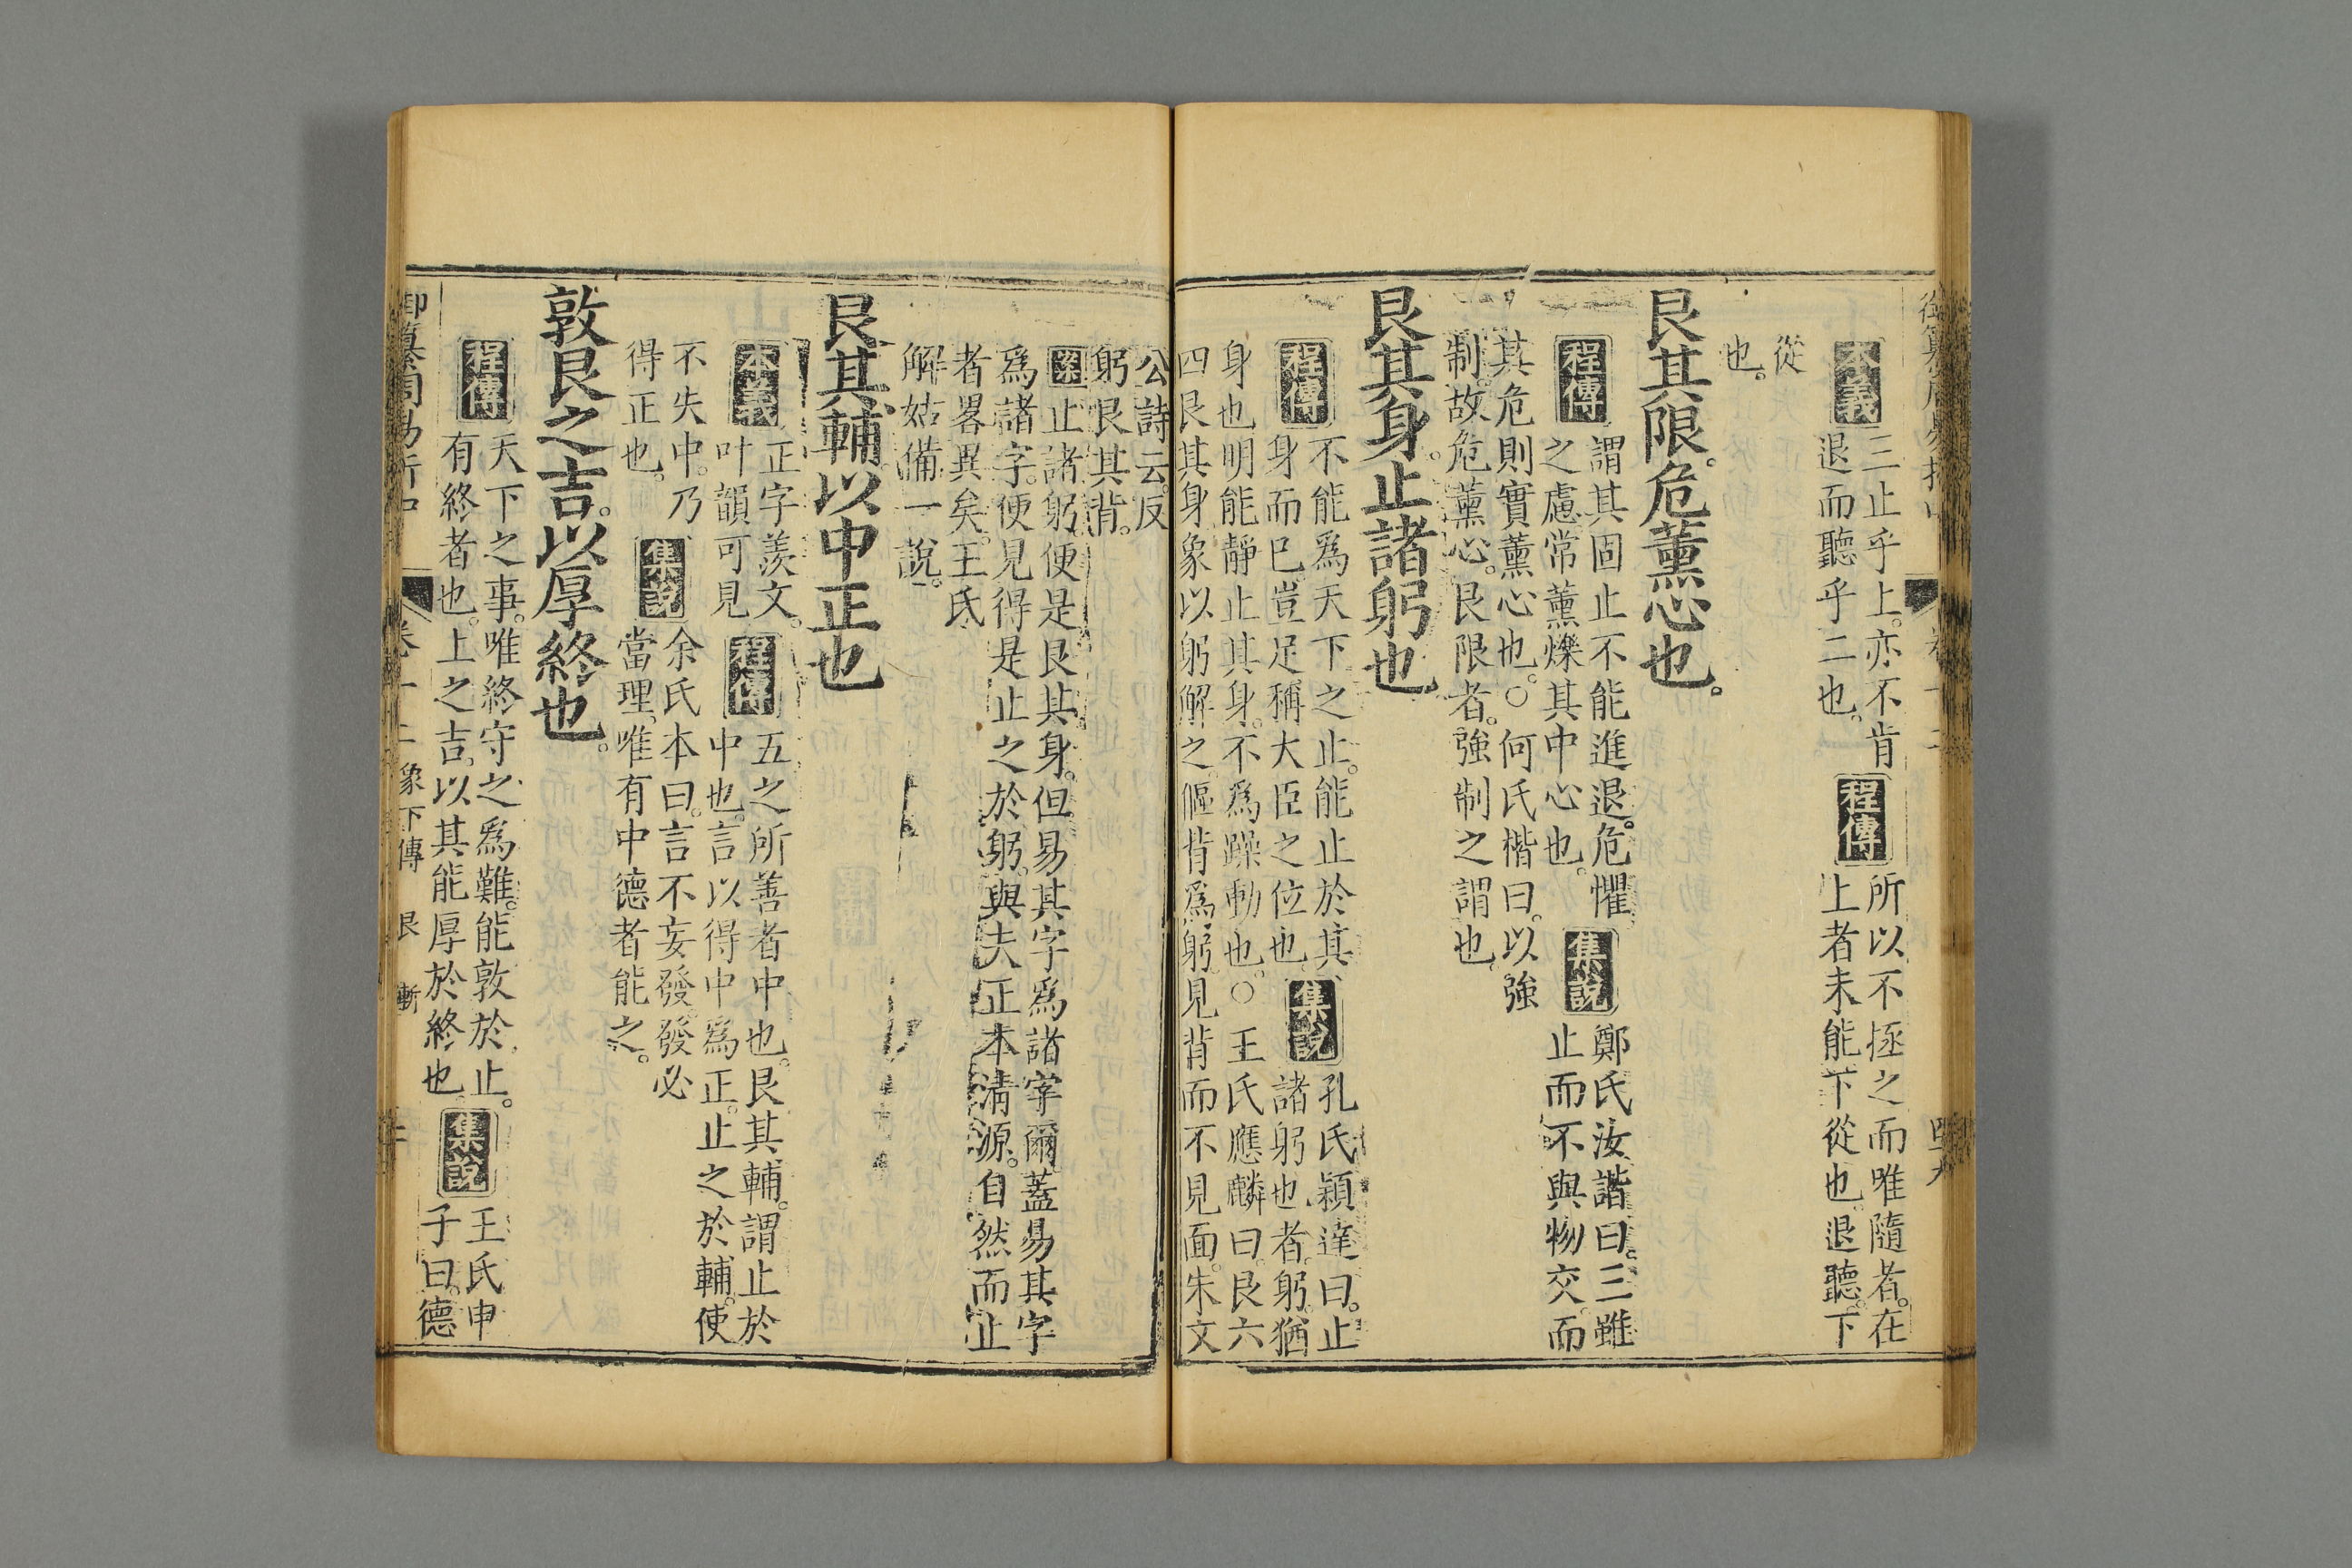 本義
三止乎上。亦不肯
退而聽乎二也。
程傳
所以不拯之而唯隨者。在
上者未能下從也。退聽。下
從
也。
艮其限。危薰心也。
程傳
謂其固止不能進退。危懼
之慮常薰爍其中心也。
集說
鄭氏汝諧曰。三雖
止而不與物交。而
其危則實薰心也。○何氏楷曰。以強
制。故危薰心。艮限者。強制之謂也。
艮其身。止諸躬也
程傳
不能爲天下之止。能止於其
身而已。豈足稱大臣之位也。
集說
孔氏穎達曰。止
諸躬也者。躬。猶
身也明能靜止其身。不爲躁動也。○王氏應麟曰。艮六
四艮其身象以躬解之。傴背爲躬。見背而不見面。朱文
公詩云。反
躬艮其背。
案
止諸躬。便是艮其身。但易其字爲諸字爾。蓋易其字
爲諸字。便見得是止之於躬。與夫正本淸源。自然而止
者畧異矣。王氏
解姑備一說。
艮其輔。以中正也
本義
正字羨文。
叶韻可見
程傳
五之所善者中也。艮其輔。謂止於
中也。言以得中爲正。止之於輔。使
不失中。乃
得正也。
集說
余氏本曰。言不妄發。發必
當理。唯有中德者能之。
敦艮之吉。以厚終也。
程傳
天下之事。唯終守之爲難。能敦於止。
有終者也。上之吉。以其能厚於終也。
集說
王氏申
子曰。德
卷十二 象下傳 艮 漸